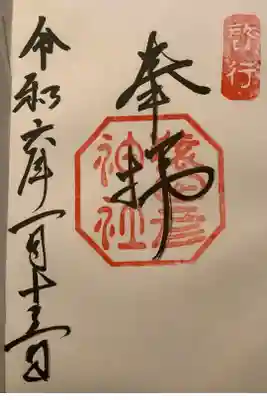 啓行
奉拝
猿田彦
神社
令和六年一月十三日